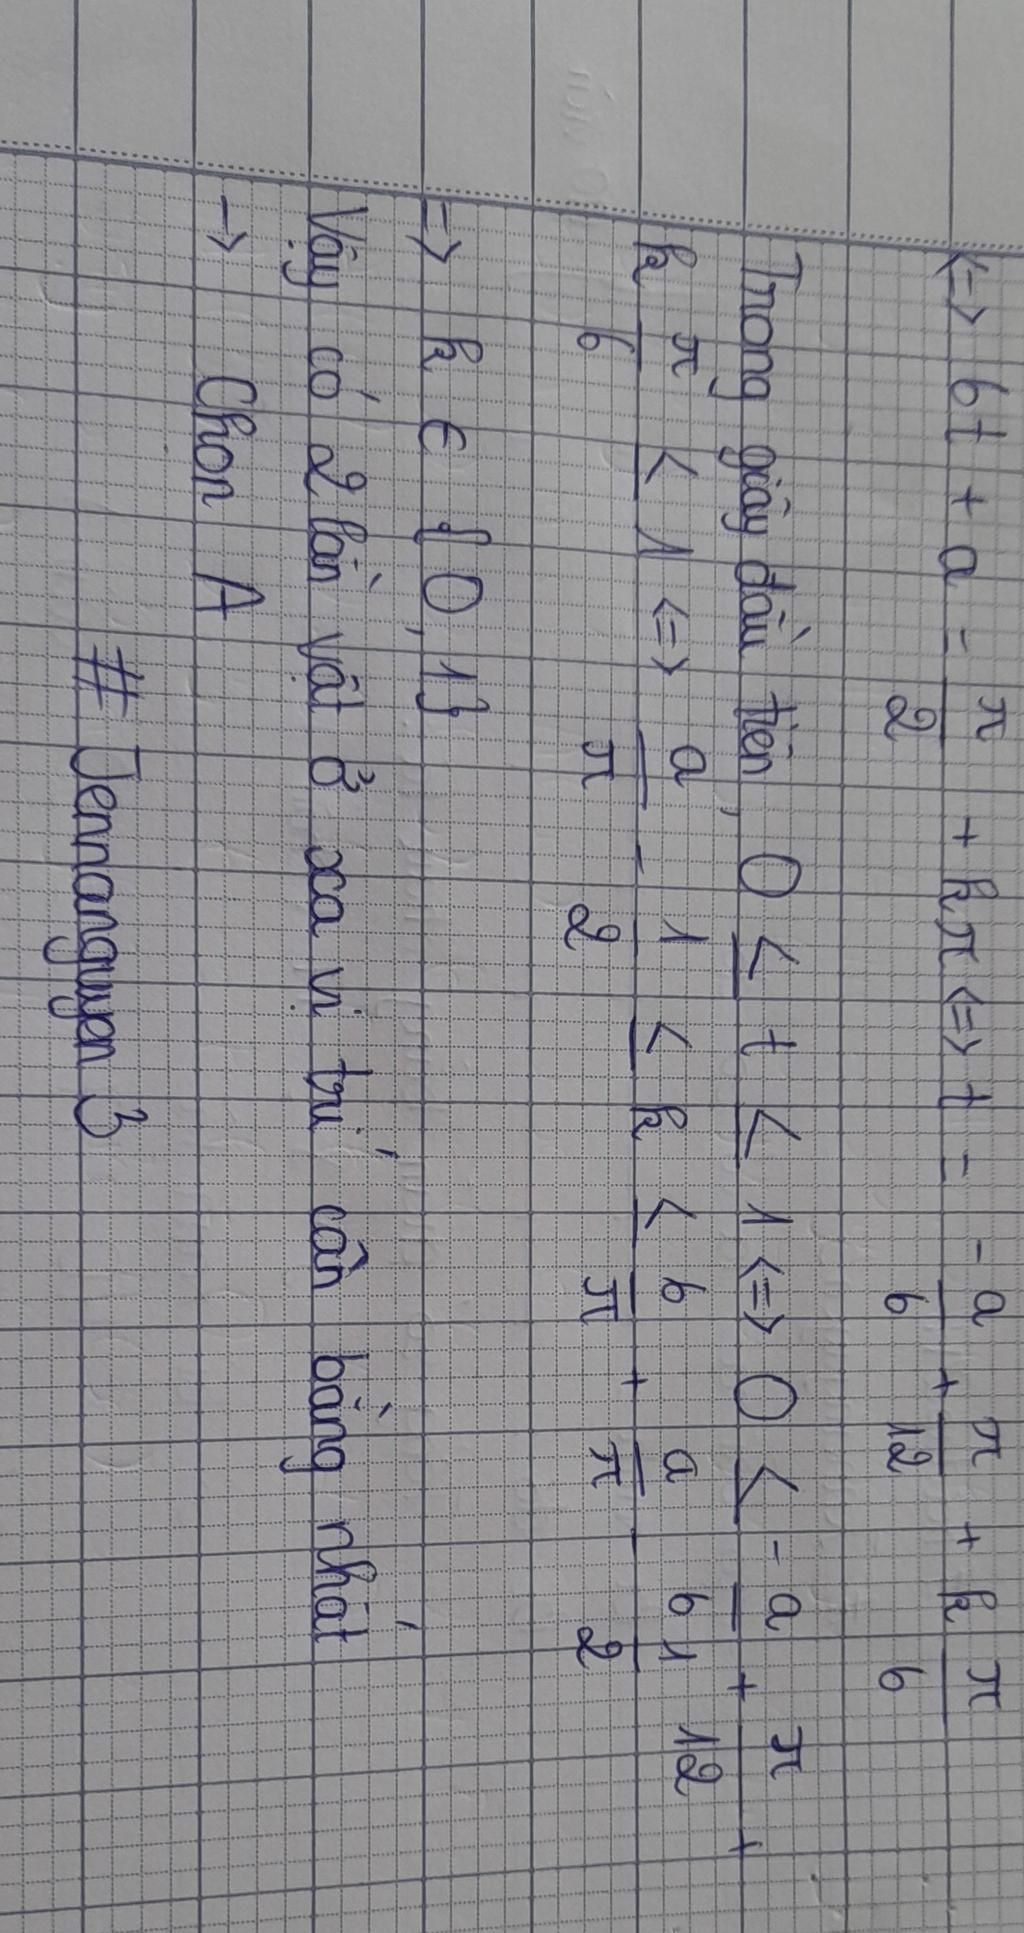 <=> 6t + a = π/2 + kπ <=> t = -a/6 + π/12 + k π/6
Trong giây đầu tiên, 0 ≤ t ≤ 1 <=> 0 ≤ -a/6 + π/12 +
k π/6 ≤ 1 <=> a/π - 1/2 ≤ k ≤ 6/π + a/π - 1/2
=> k ∈ {0, 1}
Vậy có 2 lần vật ở xa vị trí cân bằng nhất
→ Chọn A
# Jennanguyen 3